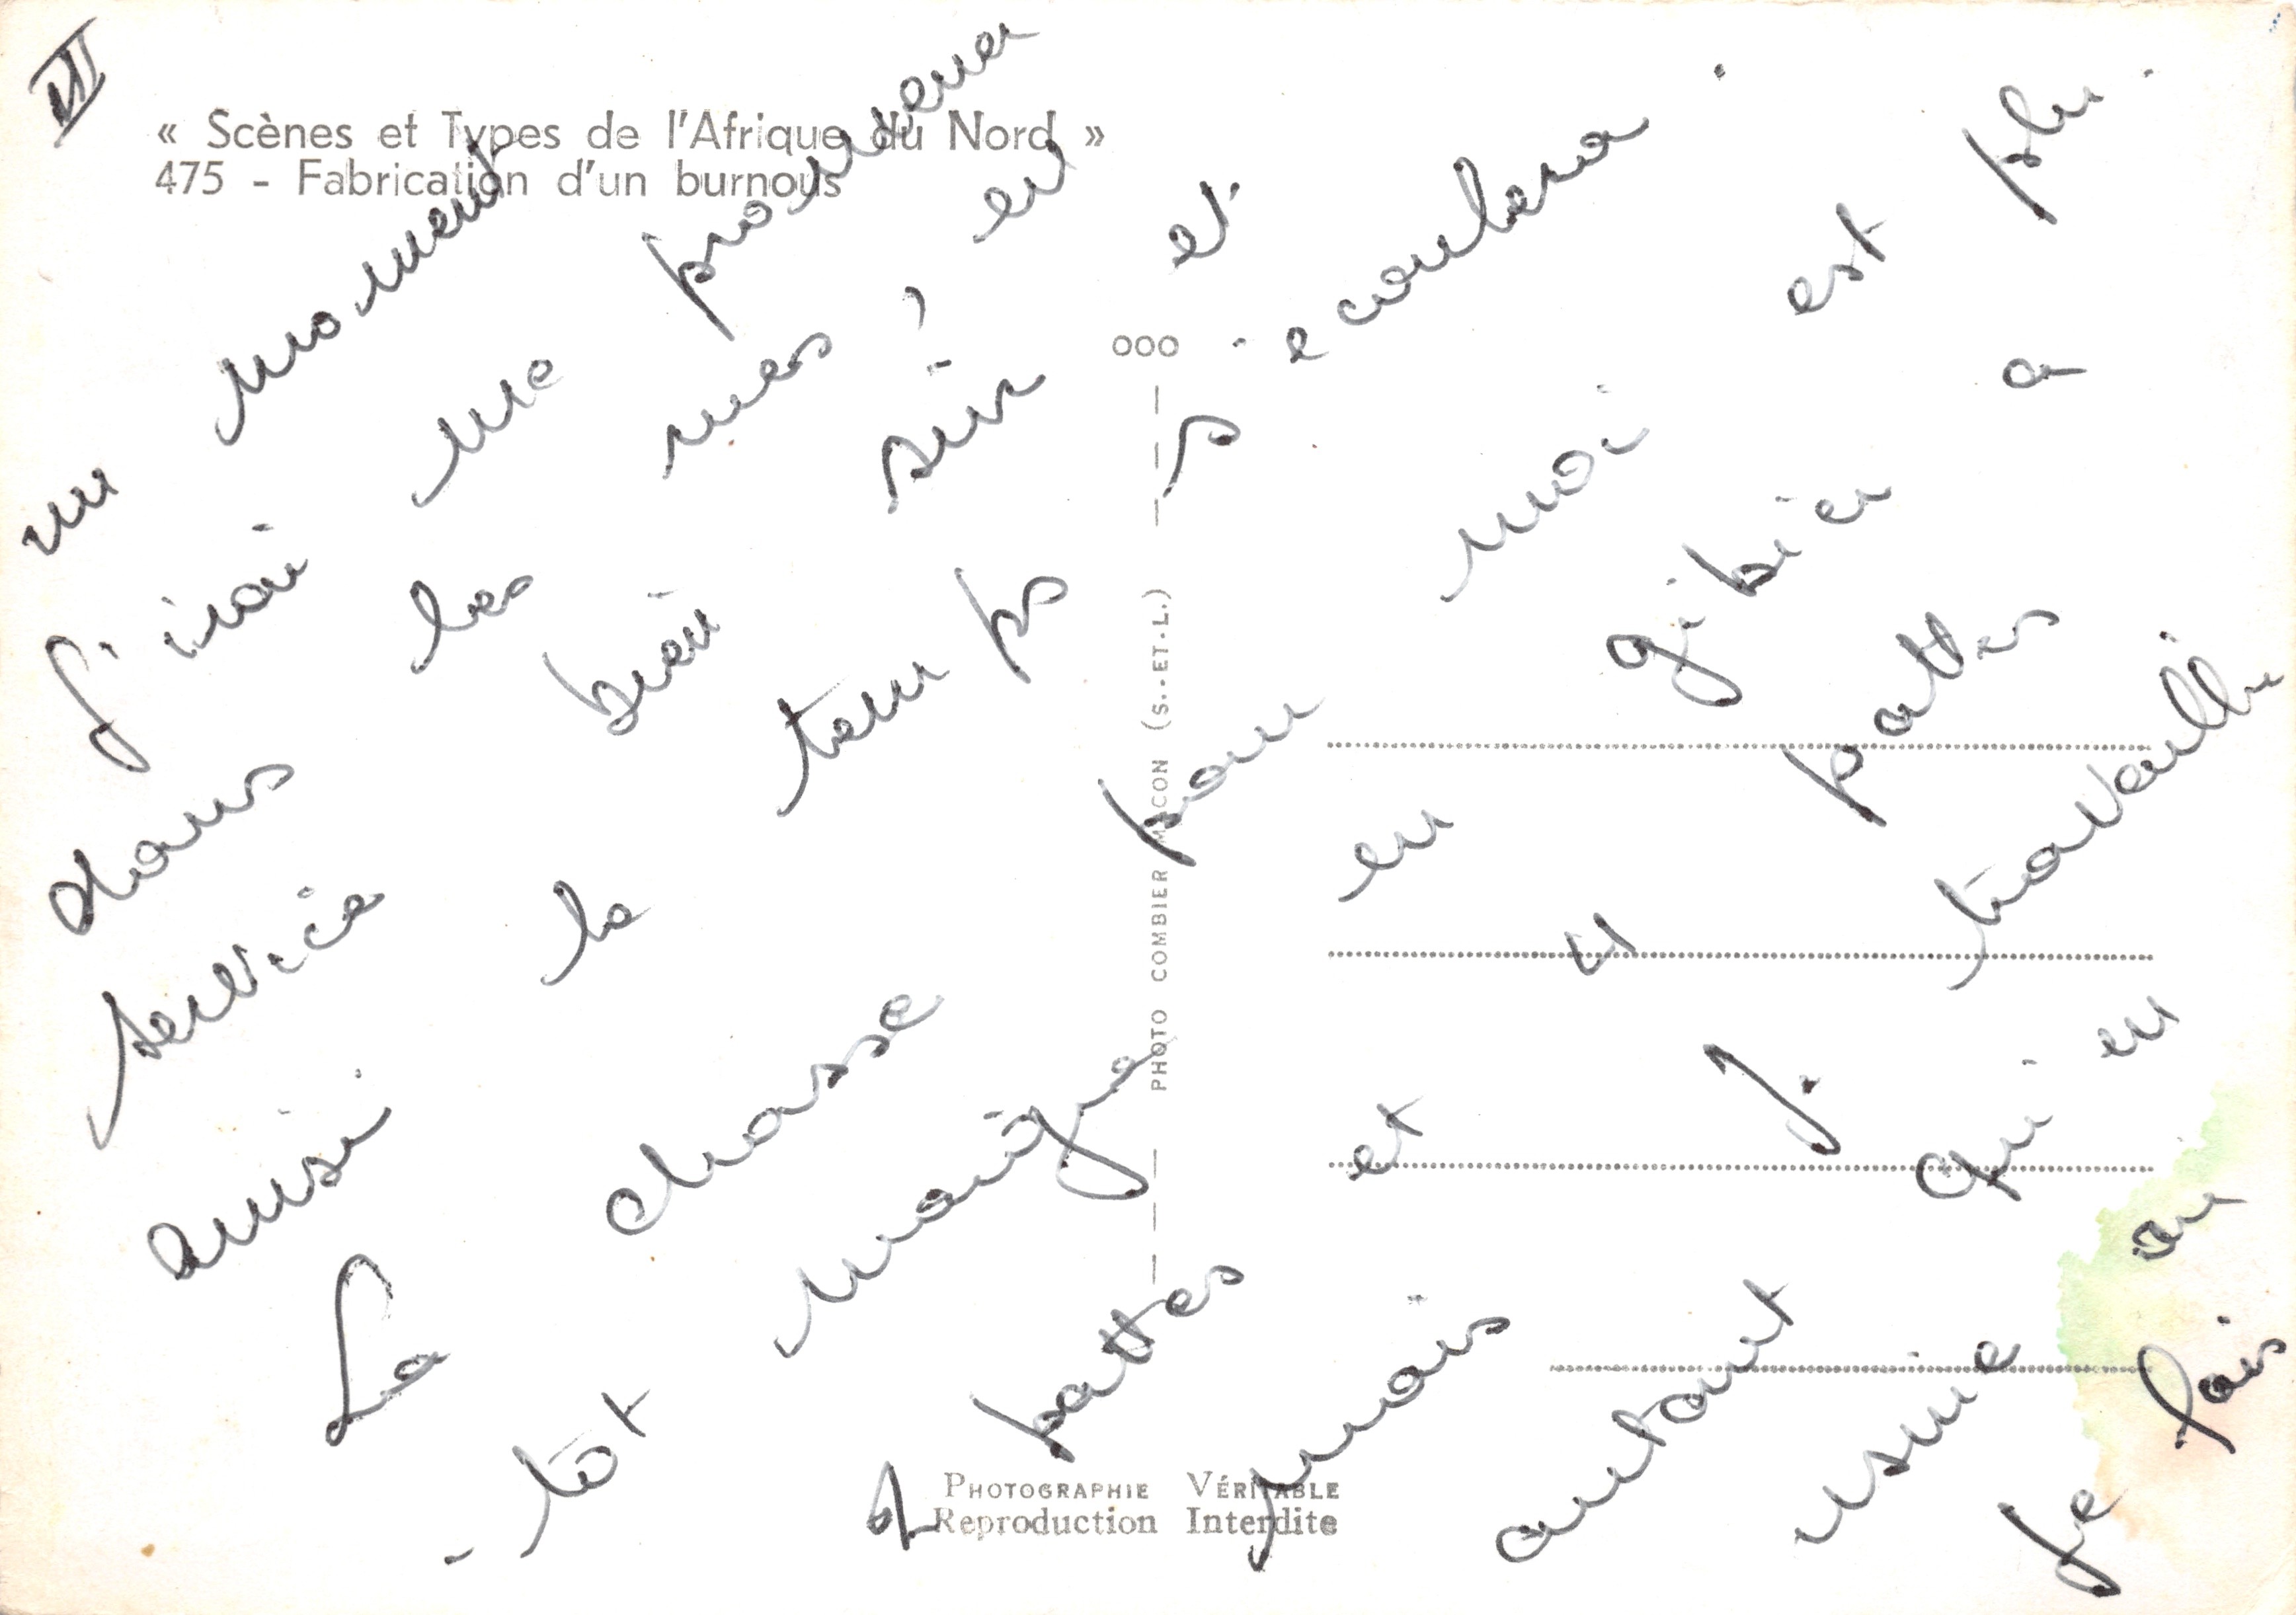 VII
« Scènes et Types de l'Afrique du Nord »
475 - Fabrication d'un burnous
un moment
J'irai me promener
dans les rues, en
service bien sûr et
ainsi le temps s'ecoulera.
La chasse pour moi est plu-
-tôt maigre en gibier a
2 pattes et 4 pattes
mais J' travaille
autant qu'en
usine ou
je fais
ooo
PHOTO COMBIER MACON (S.-ET-L.)
PHOTOGRAPHIE VÉRITABLE
Reproduction Interdite